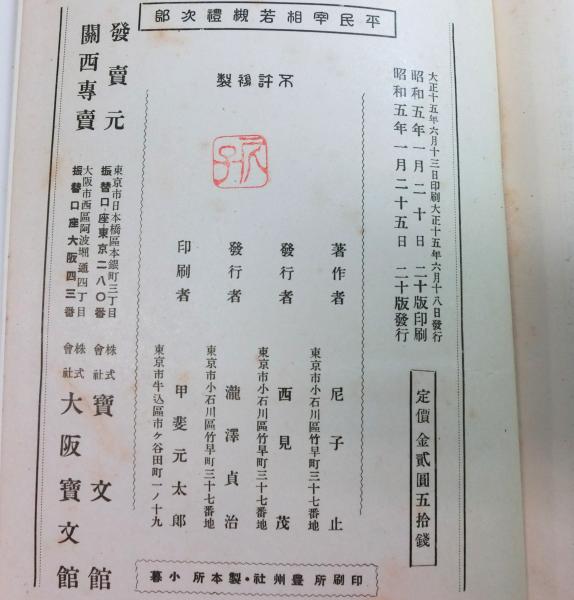 平民宰相若槻禮次郎
大正十五年六月十三日印刷大正十五年六月十八日發行
昭和五年一月二十日二十版印刷
昭和五年一月二十五日二十版發行
定價金貳圓五拾錢
不許複製
著作者 東京市小石川區竹早町三十七番地 尼子止
發行者 東京市小石川區竹早町三十七番地 西見茂
發行者 東京市小石川區竹早町三十七番地 瀧澤貞治
印刷者 東京市牛込區市ケ谷田町一ノ十九 甲斐元太郎
發賣元 東京市日本橋區本銀町三丁目 振替口座東京二八〇番 株式會社 寶文館
關西專賣 大阪市西區阿波堀通四丁目 振替口座大阪四三番 株式會社 大阪寶文館
印刷所 豊州社・製本所 小暮